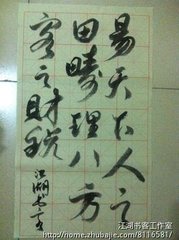 易天下人之
田畴理八方
客之财税
江湖书客
江湖书客工作室
http://home.zhubajie.com/81165817